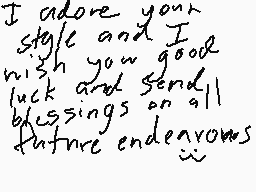 I adore your
style and I
wish you good
luck and send
blessings on all
future endeavours